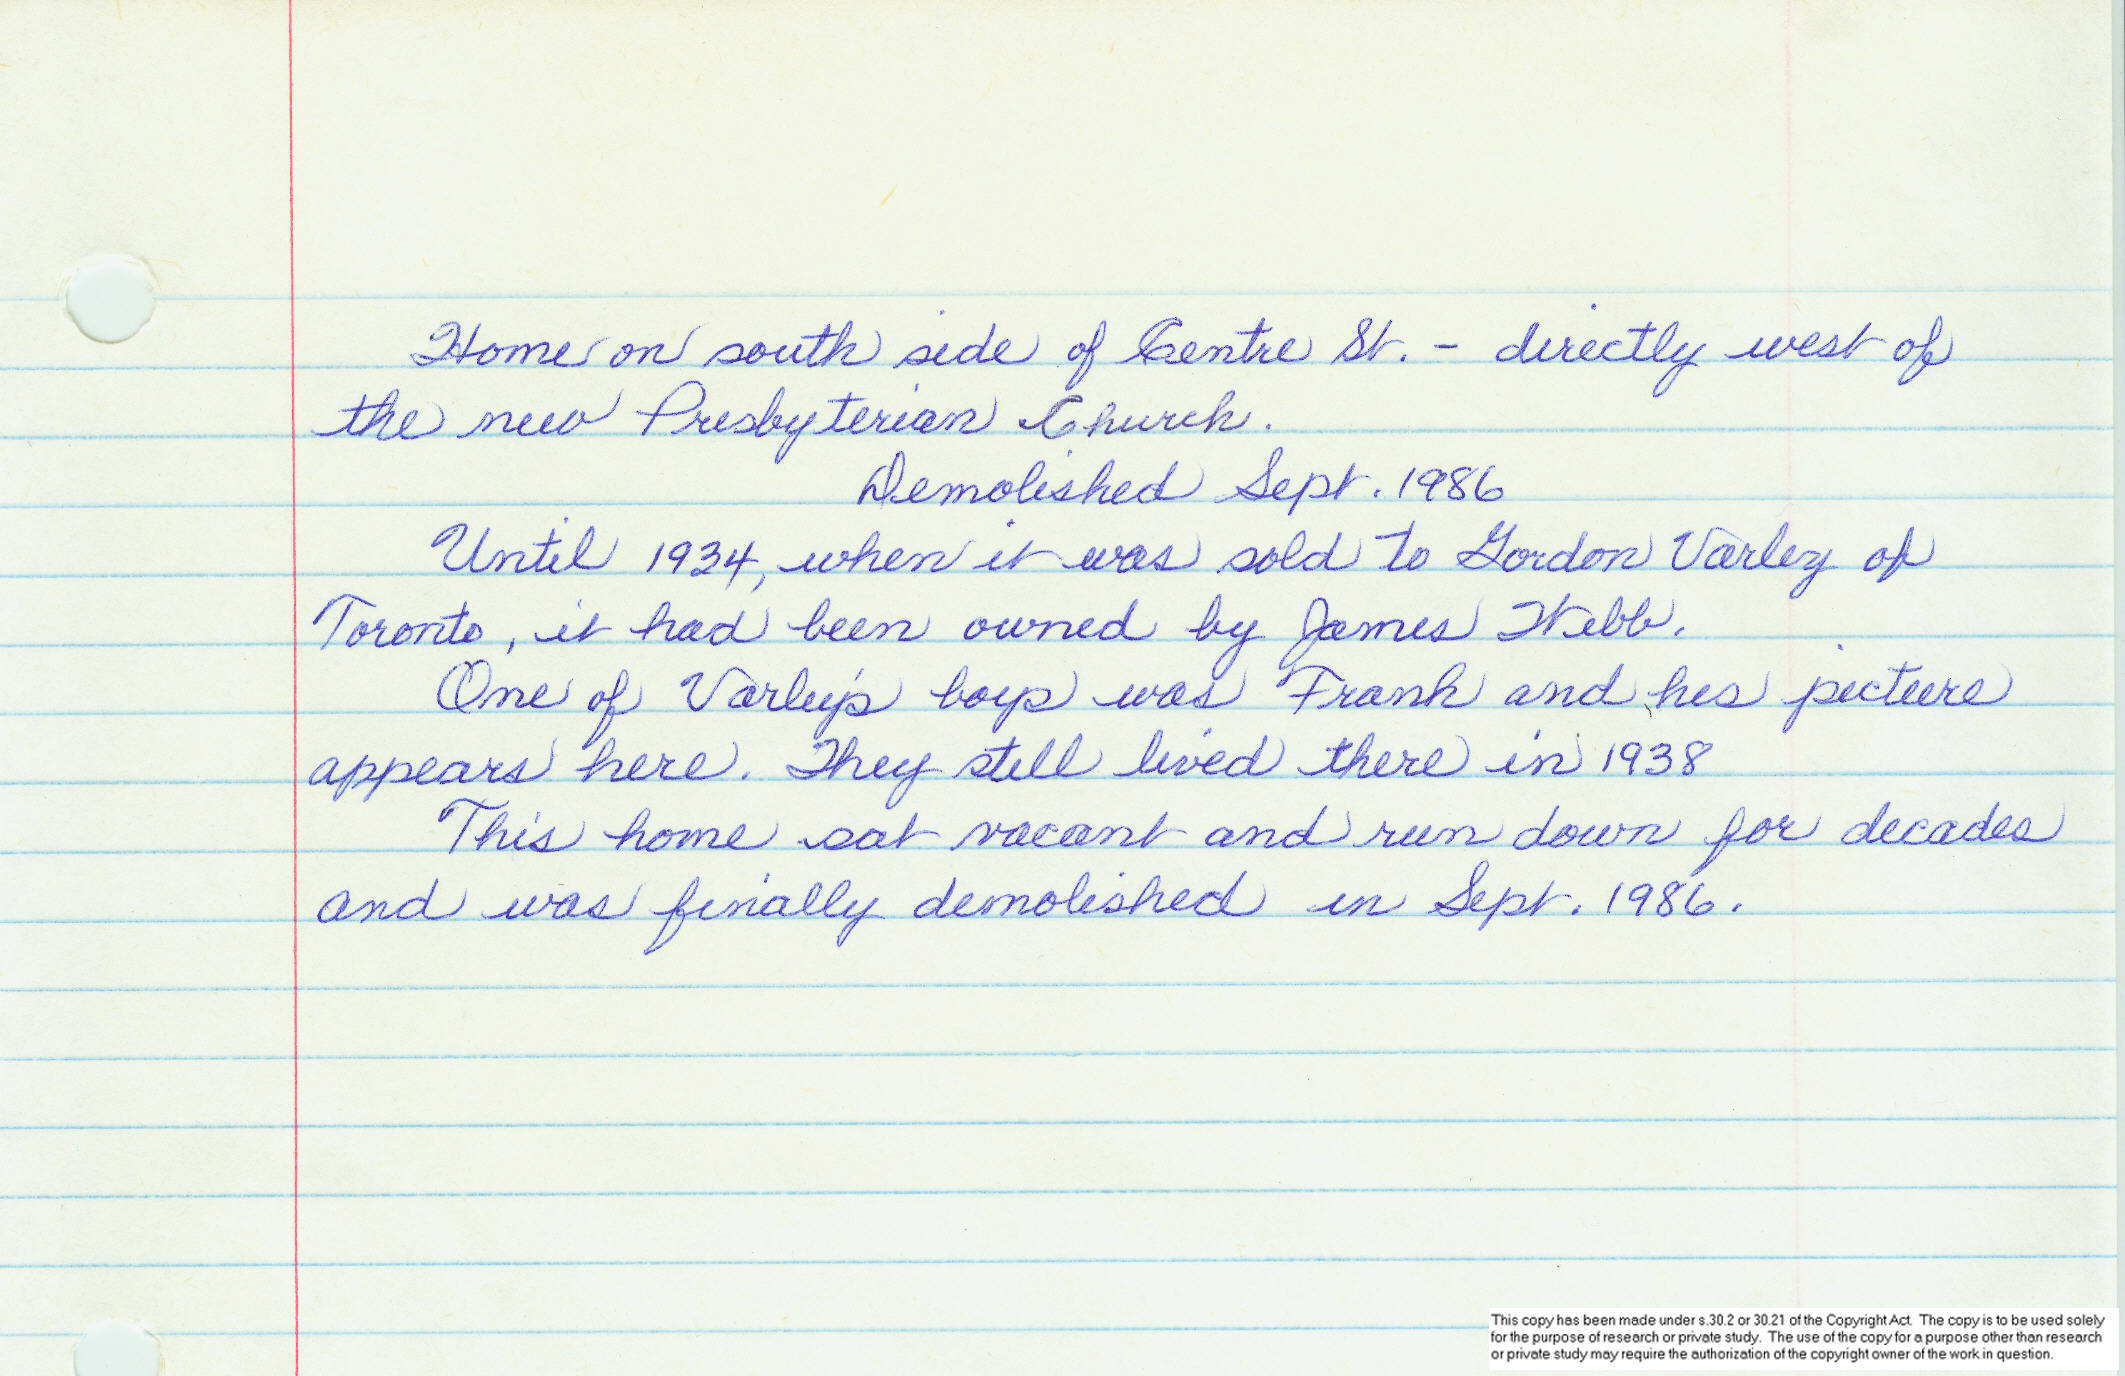 Home on south side of Centre St. - directly west of
the new Presbyterian Church.
Demolished Sept. 1986
Until 1934, when it was sold to Gordon Varley of
Toronto, it had been owned by James Webb.
One of Varley's boys was Frank and his picture
appears here. They still lived there in 1938
This home sat vacant and run down for decades
and was finally demolished in Sept. 1986.
This copy has been made under s.30.2 or 30.21 of the Copyright Act. The copy is to be used solely
for the purpose of research or private study. The use of the copy for a purpose other than research
or private study may require the authorization of the copyright owner of the work in question.